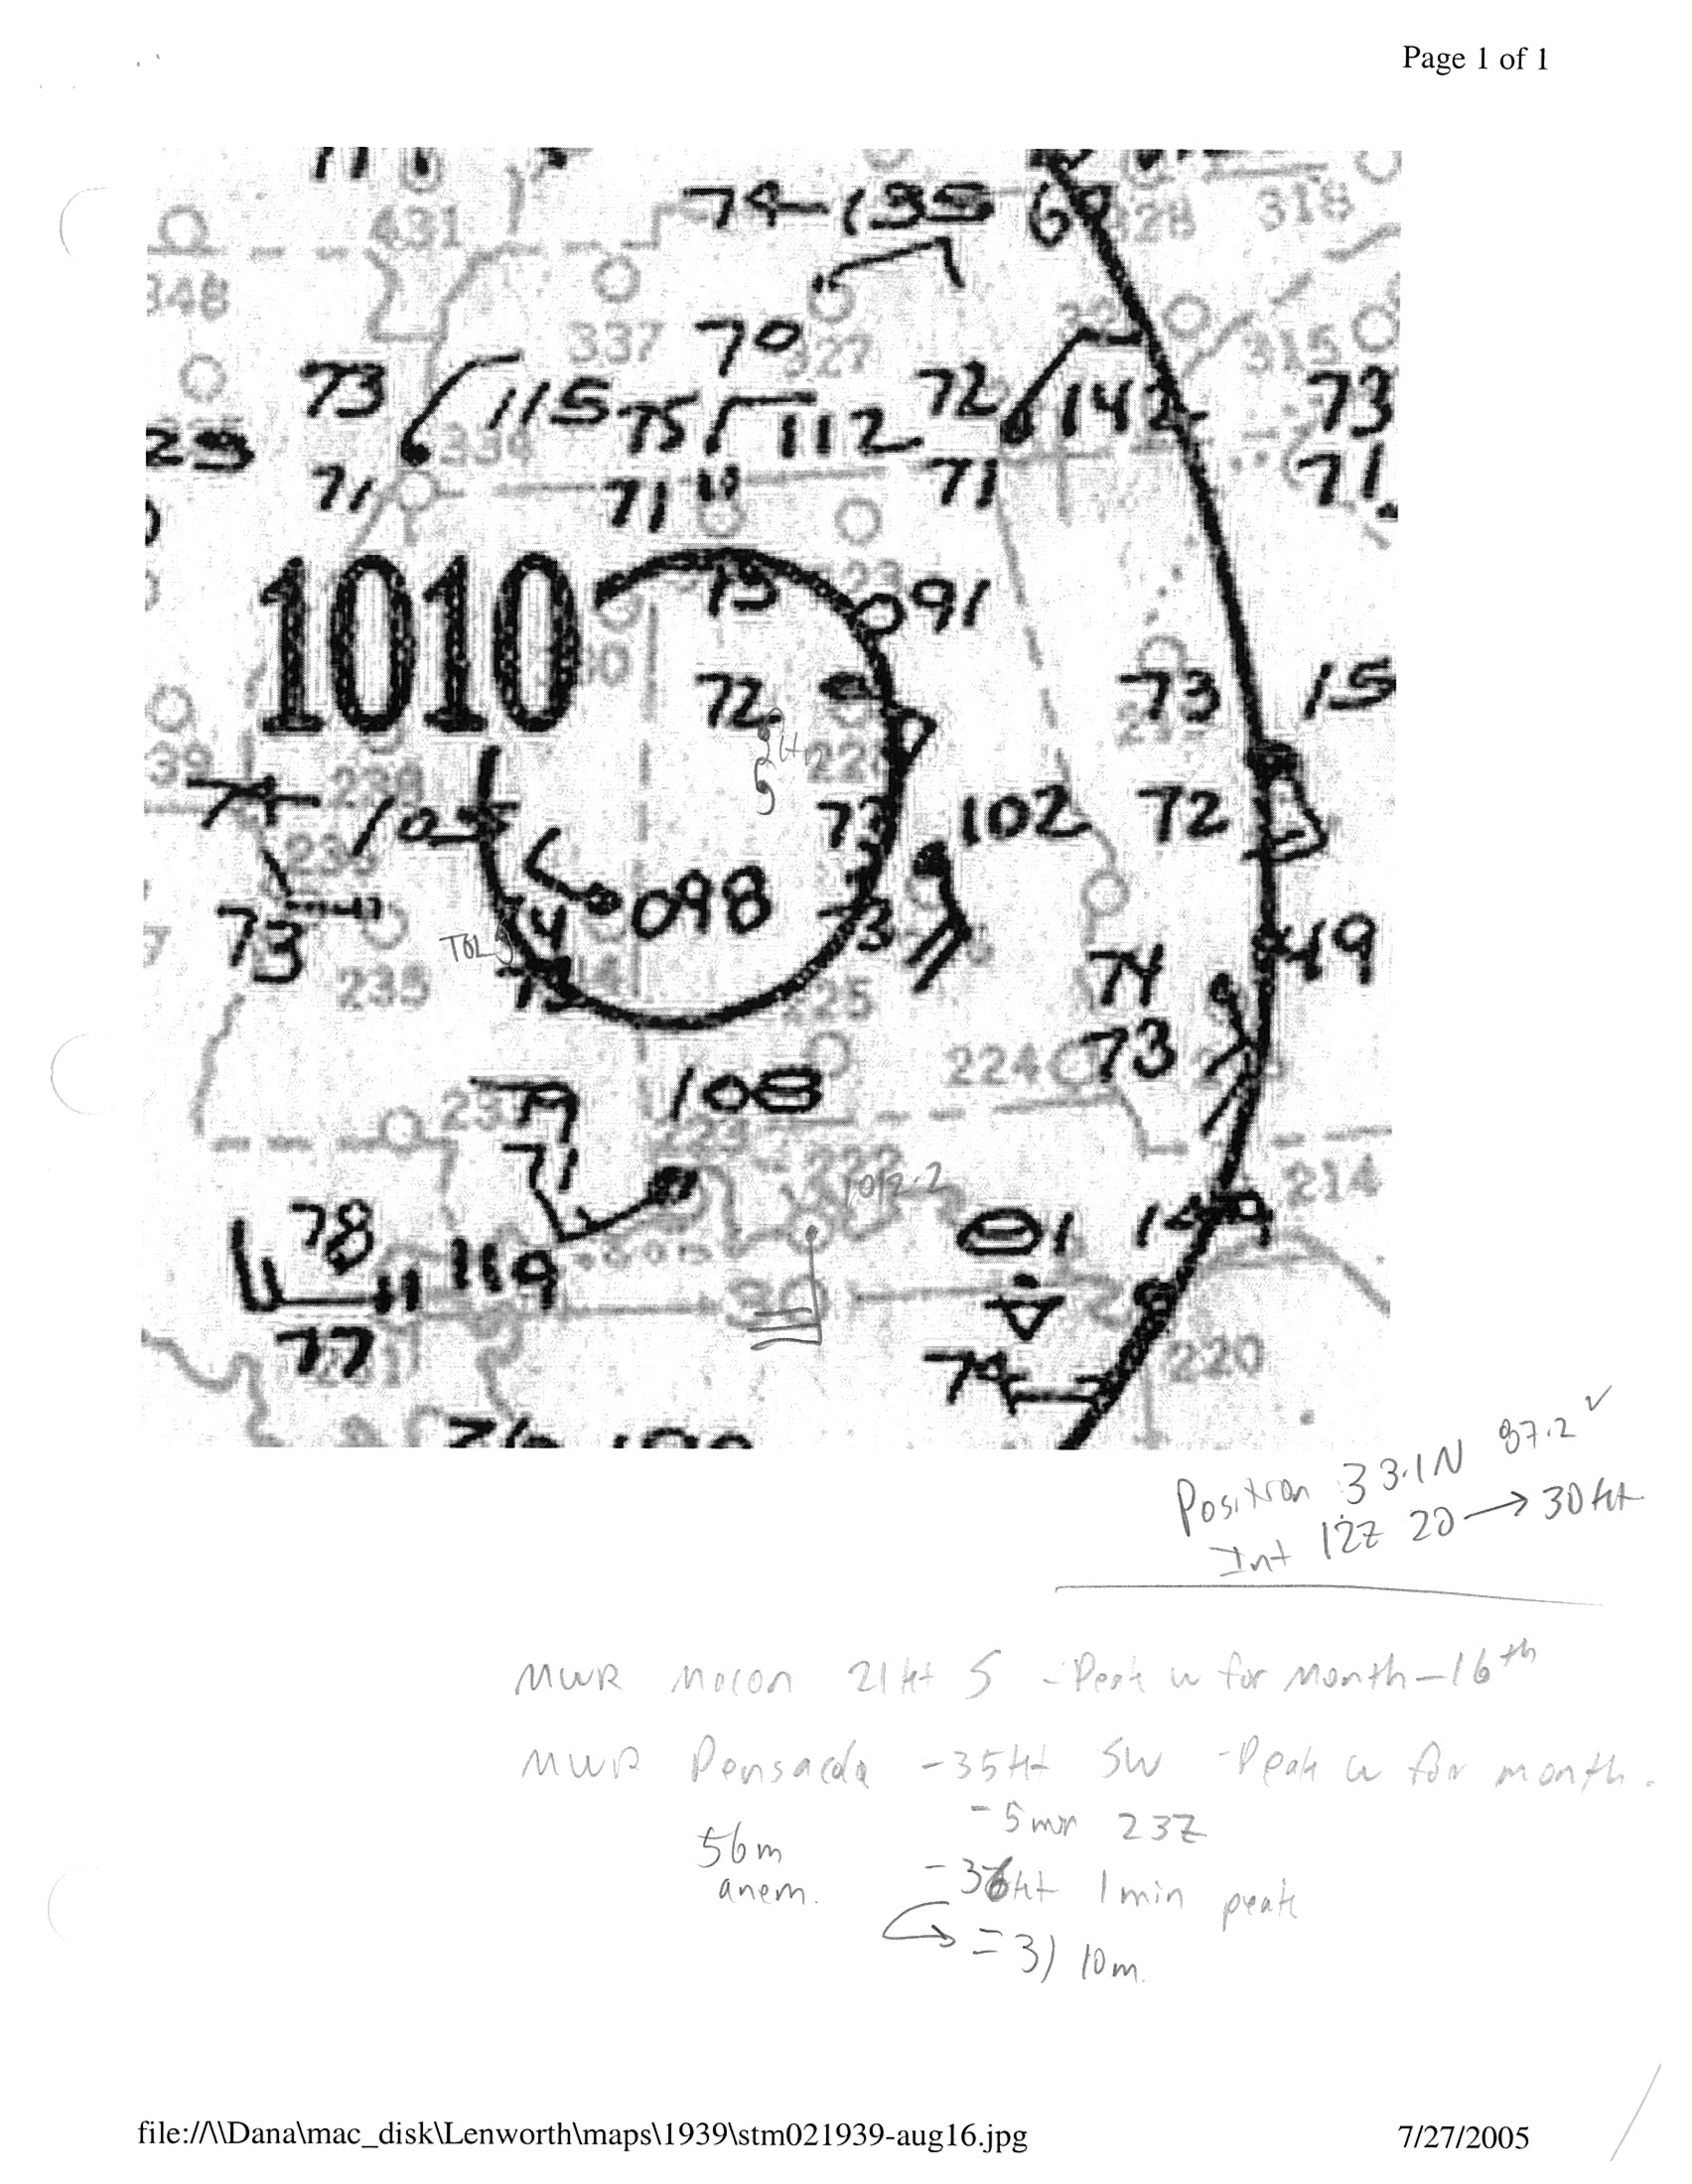 Page 1 of 1
431
74 135 69 328 318
348
337 70 327 315
73 115 75 112 72 142 73
334
71 71 71 71
1010 15 091
72 73 15
24Hr
228
239 74 238 105 73 102 72
098
73 74 73 149
TOL
235 75 225 74
79 108 224 73
71 223 222 1012.2 214
78 119 01
30
77 74 220
Position 33.1N 87.2 ✓
Int 12Z 20 → 30kt
MWR Macon 21kt S - Peak w for Month - 16th
MWR Pensacola - 35kt SW - Peak w for month.
- 5 min 23Z
56m
anem.
- 36kt 1 min peak
= 31 10m.
file://\\Dana\mac_disk\Lenworth\maps\1939\stm021939-aug16.jpg 7/27/2005